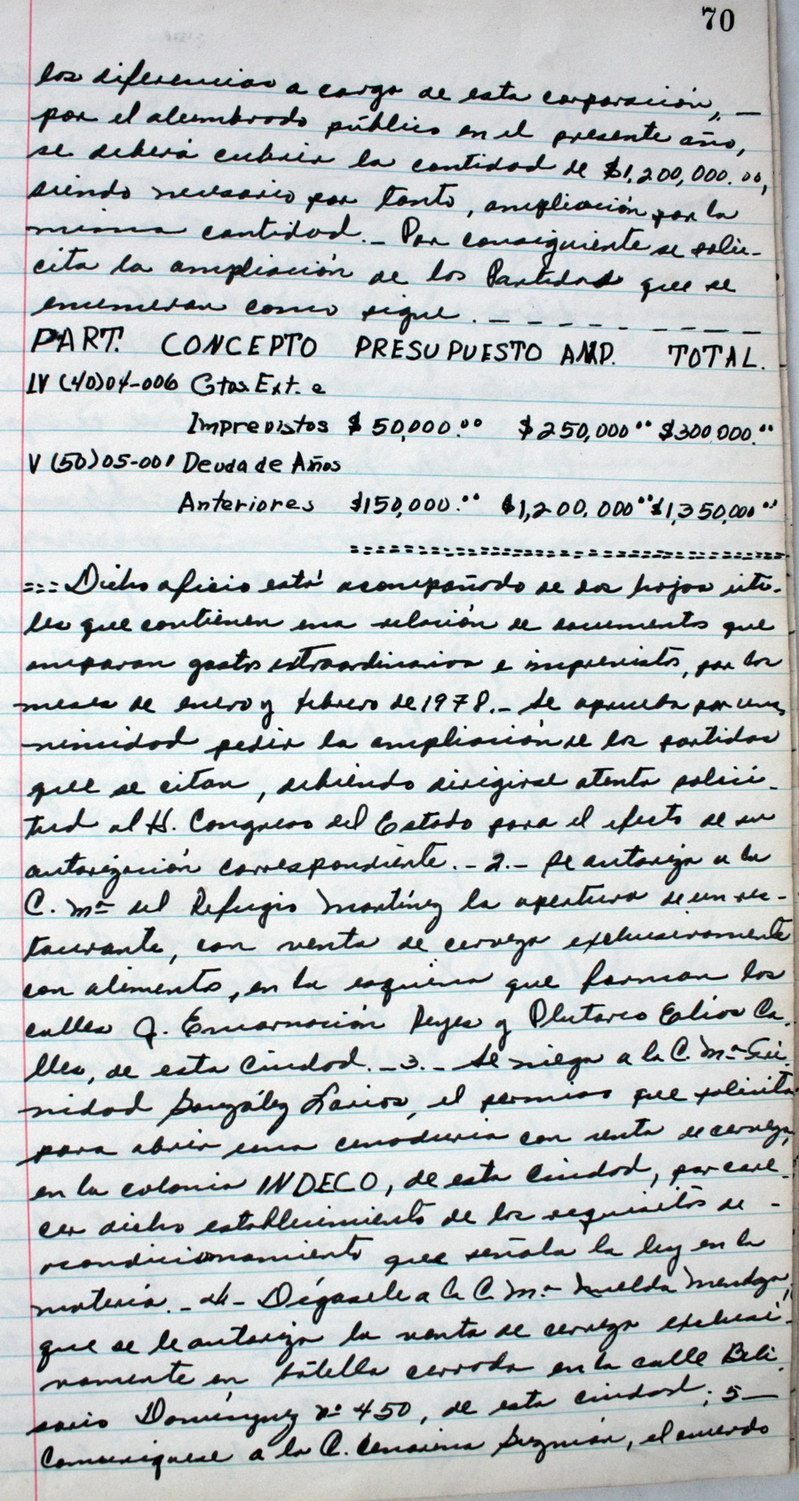 70
los diferencias a cargo de esta corporación, —
por el alumbrado público en el presente año,
se deberá cubrir la cantidad de $1,200,000.00,
siendo necesario por tanto, ampliación por la
misma cantidad.- Por consiguiente se soli-
cita la ampliación de los Partidas que se
enumeran como sigue.- - - - - - - - -
PART. CONCEPTO PRESUPUESTO AMP. TOTAL.
IV (40)04-006 Gtos Ext. e
Imprevistos $50,000.00 $250,000.00 $300,000.00
V (50)05-001 Deuda de Años
Anteriores $150,000.00 $1,200,000.00 $1,350,000.00
==============================
=== Dicho oficio está acompañado de dos hojas úti-
les que contienen una relación de documentos que
amparan gastos extraordinarios e imprevistos, por los
meses de enero y febrero de 1978.- Se aprueba por una
nimidad pedir la ampliación de los partidas
que se citan, debiendo dirigirse atenta solici-
tud al H. Congreso del Estado para el efecto de su
autorización correspondiente.- 2.- Se autoriza a la
C. Ma del Refugio Martínez la apertura de un res-
taurante, con venta de cerveza exclusivamente
con alimentos, en la esquina que forman las
calles J. Encarnación Reyes y Plutarco Elías Ca-
lles, de esta Ciudad.- 3.- Se niega a la C. Ma Tri
nidad González Larios, el permiso que solicita
para abrir una cenaduría con venta de cerveza,
en la colonia INDECO, de esta Ciudad, por care-
cer dicho establecimiento de los requisitos de -
acondicionamiento que señala la ley en la
materia.- 4- Dígasele a la C. Ma Imelda Mendoza,
que se le autoriza la venta de cerveza exclusi-
vamente en botella cerrada en la calle Beli
sario Domínguez No 450, de esta ciudad; 5 —
Comuníquese a la C. Cenorina Guzmán, el acuerdo